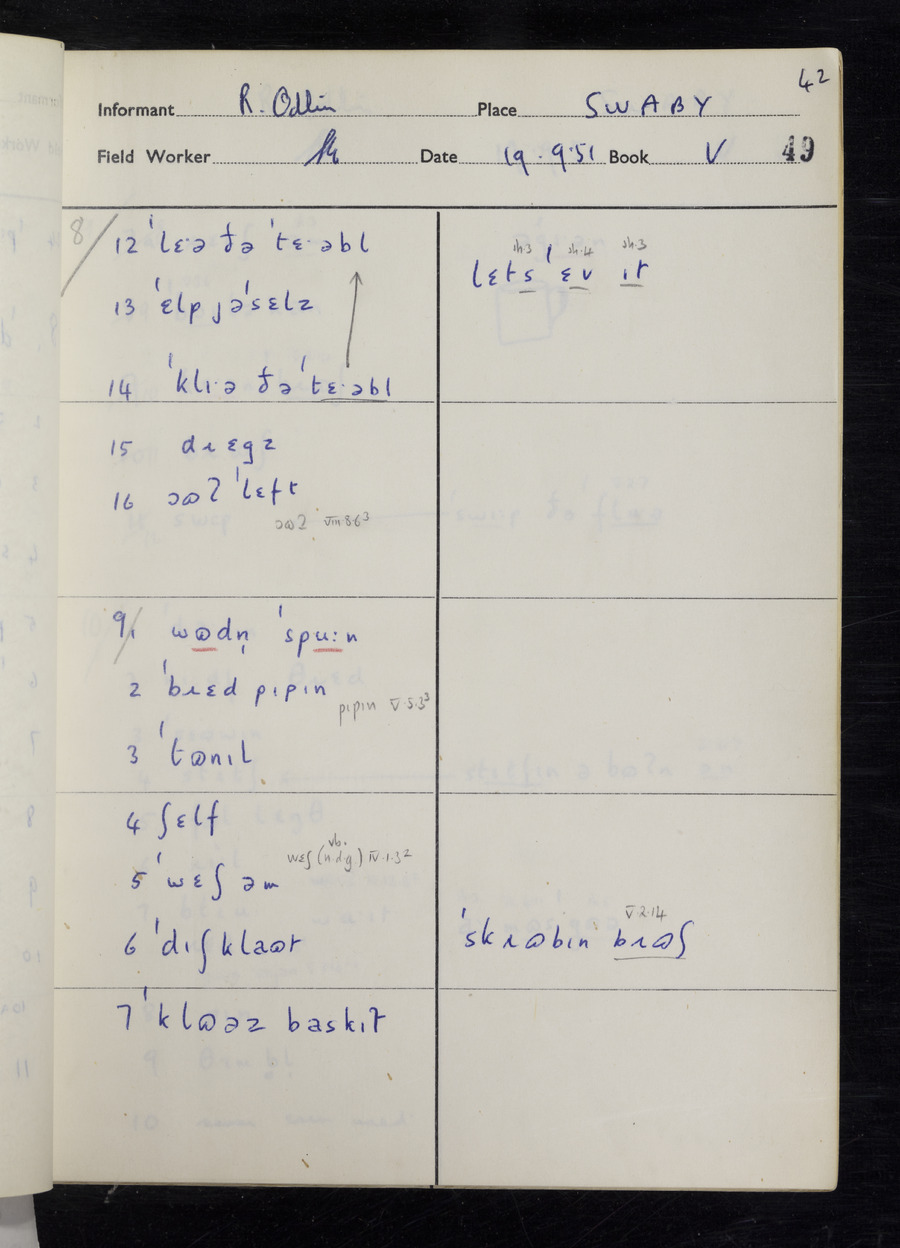 42
Informant R. Odlin Place SWABY
Field Worker Date 19.9.51 Book V 49
8/ 12 ˈlɛ·ə ðə ˈtɛ·əbl
13 ˈɛlp jəˈsɛlz
14 ˈklɪ·ə ðə ˈtɛ·əbl
sh.3 sh.4 sh.3
lɛts ˈɛv ɪt
15 dɹɛgz
16 ɔʊʔ ˈlɛft
ɔʊʔ VIII 8.6³
9/ 1 wʊdn̩ ˈspu:n
2 ˈbɹɛd pɪpɪn
pɪpɪn V.5.3³
3 ˈtʊnɪl
4 ʃɛlf
vb.
wɛʃ (n.dg.) IV.1.3²
5 ˈwɛʃ əm
V.2.14
6 ˈdɪʃklaʊt ˈskɹʊbɪn bɹʊʃ
7 ˈklʊəz baskɪt